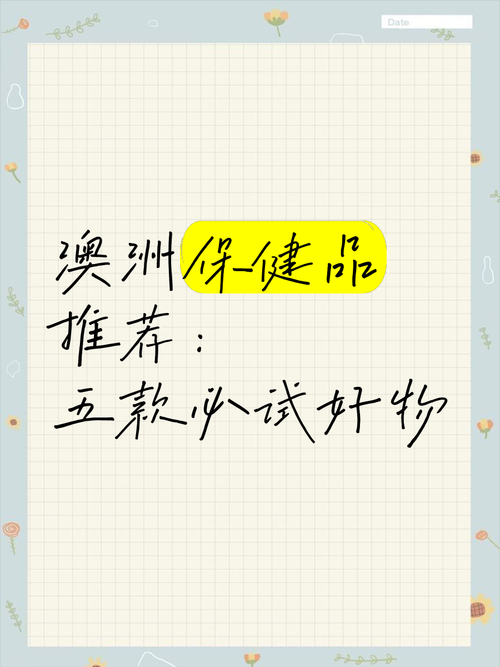 Date
澳洲保健品
推荐：
五款必试好物